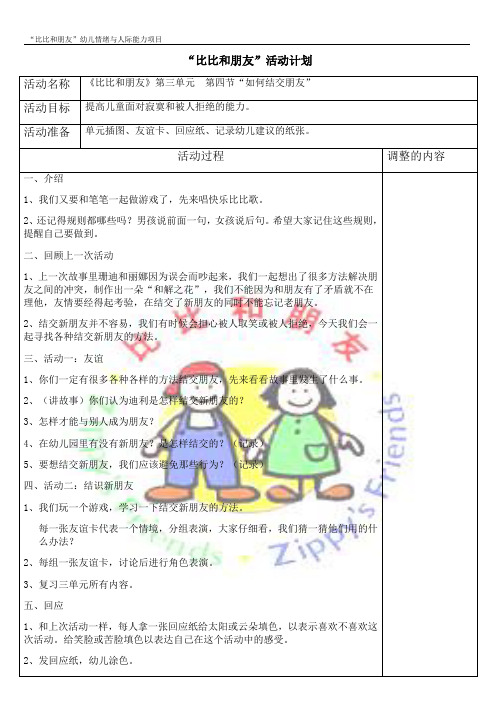 “比比和朋友”幼儿情绪与人际能力项目
“比比和朋友”活动计划
活动名称 《比比和朋友》第三单元 第四节“如何结交朋友”
活动目标 提高儿童面对寂寞和被人拒绝的能力。
活动准备 单元插图、友谊卡、回应纸、记录幼儿建议的纸张。
活动过程 调整的内容
一、介绍
1、我们又要和笔笔一起做游戏了，先来唱快乐比比歌。
2、还记得规则都哪些吗？男孩说前面一句，女孩说后句。希望大家记住这些规则，
提醒自己要做到。
二、回顾上一次活动
1、上一次故事里珊迪和丽娜因为误会而吵起来，我们一起想出了很多方法解决朋
友之间的冲突，制作出一朵“和解之花”，我们不能因为和朋友有了矛盾就不在
理他，友情要经得起考验，在结交了新朋友的同时不能忘记老朋友。
2、结交新朋友并不容易，我们有时候会担心被人取笑或被人拒绝，今天我们会一
起寻找各种结交新朋友的方法。
三、活动一：友谊
1、你们一定有很多各种各样的方法结交朋友，先来看看故事里发生了什么事。
2、（讲故事）你们认为迪利是怎样结交新朋友的？
3、怎样才能与别人成为朋友？
4、在幼儿园里有没有新朋友？是怎样结交的？（记录）
5、要想结交新朋友，我们应该避免那些行为？（记录）
四、活动二：结识新朋友
1、我们玩一个游戏，学习一下结交新朋友的方法。
每一张友谊卡代表一个情境，分组表演，大家仔细看，我们猜一猜他们用的什
么办法？
2、每组一张友谊卡，讨论后进行角色表演。
3、复习三单元所有内容。
五、回应
1、和上次活动一样，每人拿一张回应纸给太阳或云朵填色，以表示喜欢不喜欢这
次活动。给笑脸或苦脸填色以表达自己在这个活动中的感受。
2、发回应纸，幼儿涂色。
比比和朋友
Zippy's Friends